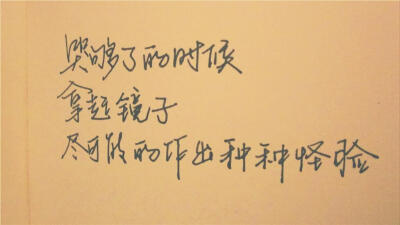 哭够了的时候
拿起镜子
尽可能的作出种种怪验